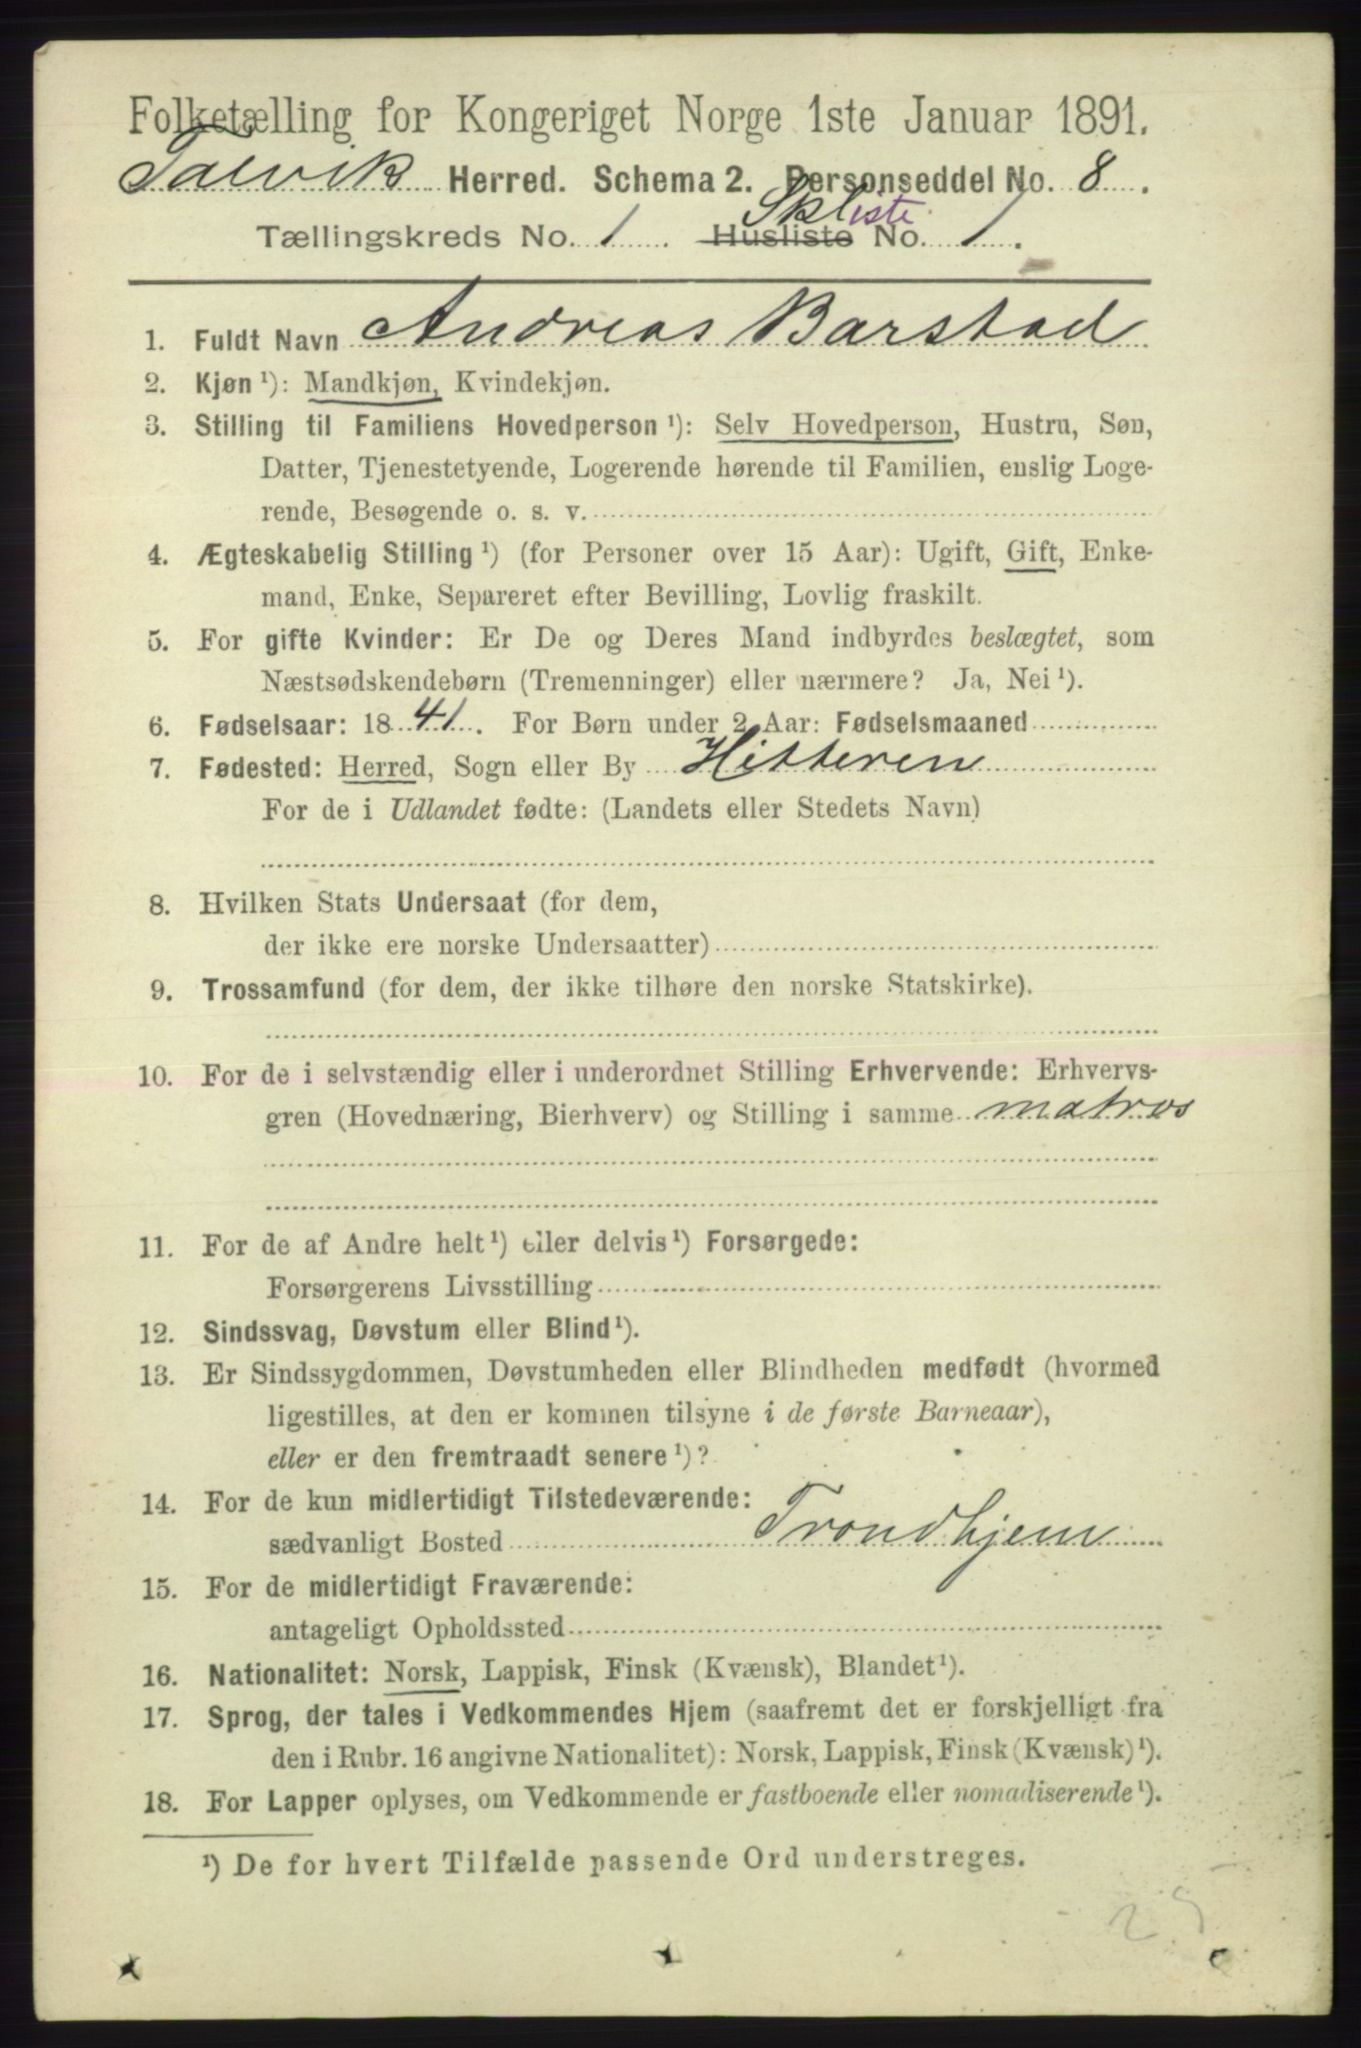 Folketælling for Kongeriget Norge 1ste Januar 1891.
Talvik Herred. Schema 2. Personseddel No. 8.
Skibsliste
Tællingskreds No. 1 Husliste No. 1.
1. Fuldt Navn Andreas Barstad
2. Kjøn ¹): Mandkjøn, Kvindekjøn.
3. Stilling til Familiens Hovedperson ¹): Selv Hovedperson, Hustru, Søn,
Datter, Tjenestetyende, Logerende hørende til Familien, enslig Loge-
rende, Besøgende o. s. v.
4. Ægteskabelig Stilling ¹) (for Personer over 15 Aar): Ugift, Gift, Enke-
mand, Enke, Separeret efter Bevilling, Lovlig fraskilt.
5. For gifte Kvinder: Er De og Deres Mand indbyrdes beslægtet, som
Næstsødskendebørn (Tremenninger) eller nærmere? Ja, Nei ¹).
6. Fødselsaar: 1841. For Børn under 2 Aar: Fødselsmaaned
7. Fødested: Herred, Sogn eller By Hitteren
For de i Udlandet fødte: (Landets eller Stedets Navn)
8. Hvilken Stats Undersaat (for dem,
der ikke ere norske Undersaatter)
9. Trossamfund (for dem, der ikke tilhøre den norske Statskirke).
10. For de i selvstændig eller i underordnet Stilling Erhvervende: Erhvervs-
gren (Hovednæring, Bierhverv) og Stilling i samme matros
11. For de af Andre helt ¹) eller delvis ¹) Forsørgede:
Forsørgerens Livsstilling
12. Sindssvag, Døvstum eller Blind ¹).
13. Er Sindssygdommen, Døvstumheden eller Blindheden medfødt (hvormed
ligestilles, at den er kommen tilsyne i de første Barneaar),
eller er den fremtraadt senere ¹)?
14. For de kun midlertidigt Tilstedeværende:
sædvanligt Bosted Trondhjem
15. For de midlertidigt Fraværende:
antageligt Opholdssted
16. Nationalitet: Norsk, Lappisk, Finsk (Kvænsk), Blandet ¹).
17. Sprog, der tales i Vedkommendes Hjem (saafremt det er forskjelligt fra
den i Rubr. 16 angivne Nationalitet): Norsk, Lappisk, Finsk (Kvænsk) ¹).
18. For Lapper oplyses, om Vedkommende er fastboende eller nomadiserende ¹).
¹) De for hvert Tilfælde passende Ord understreges.